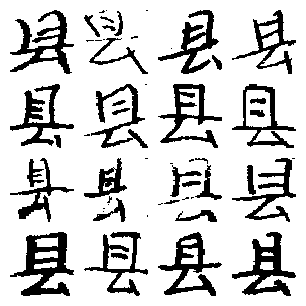 县县县县
县县县县
县县县县
县县县县